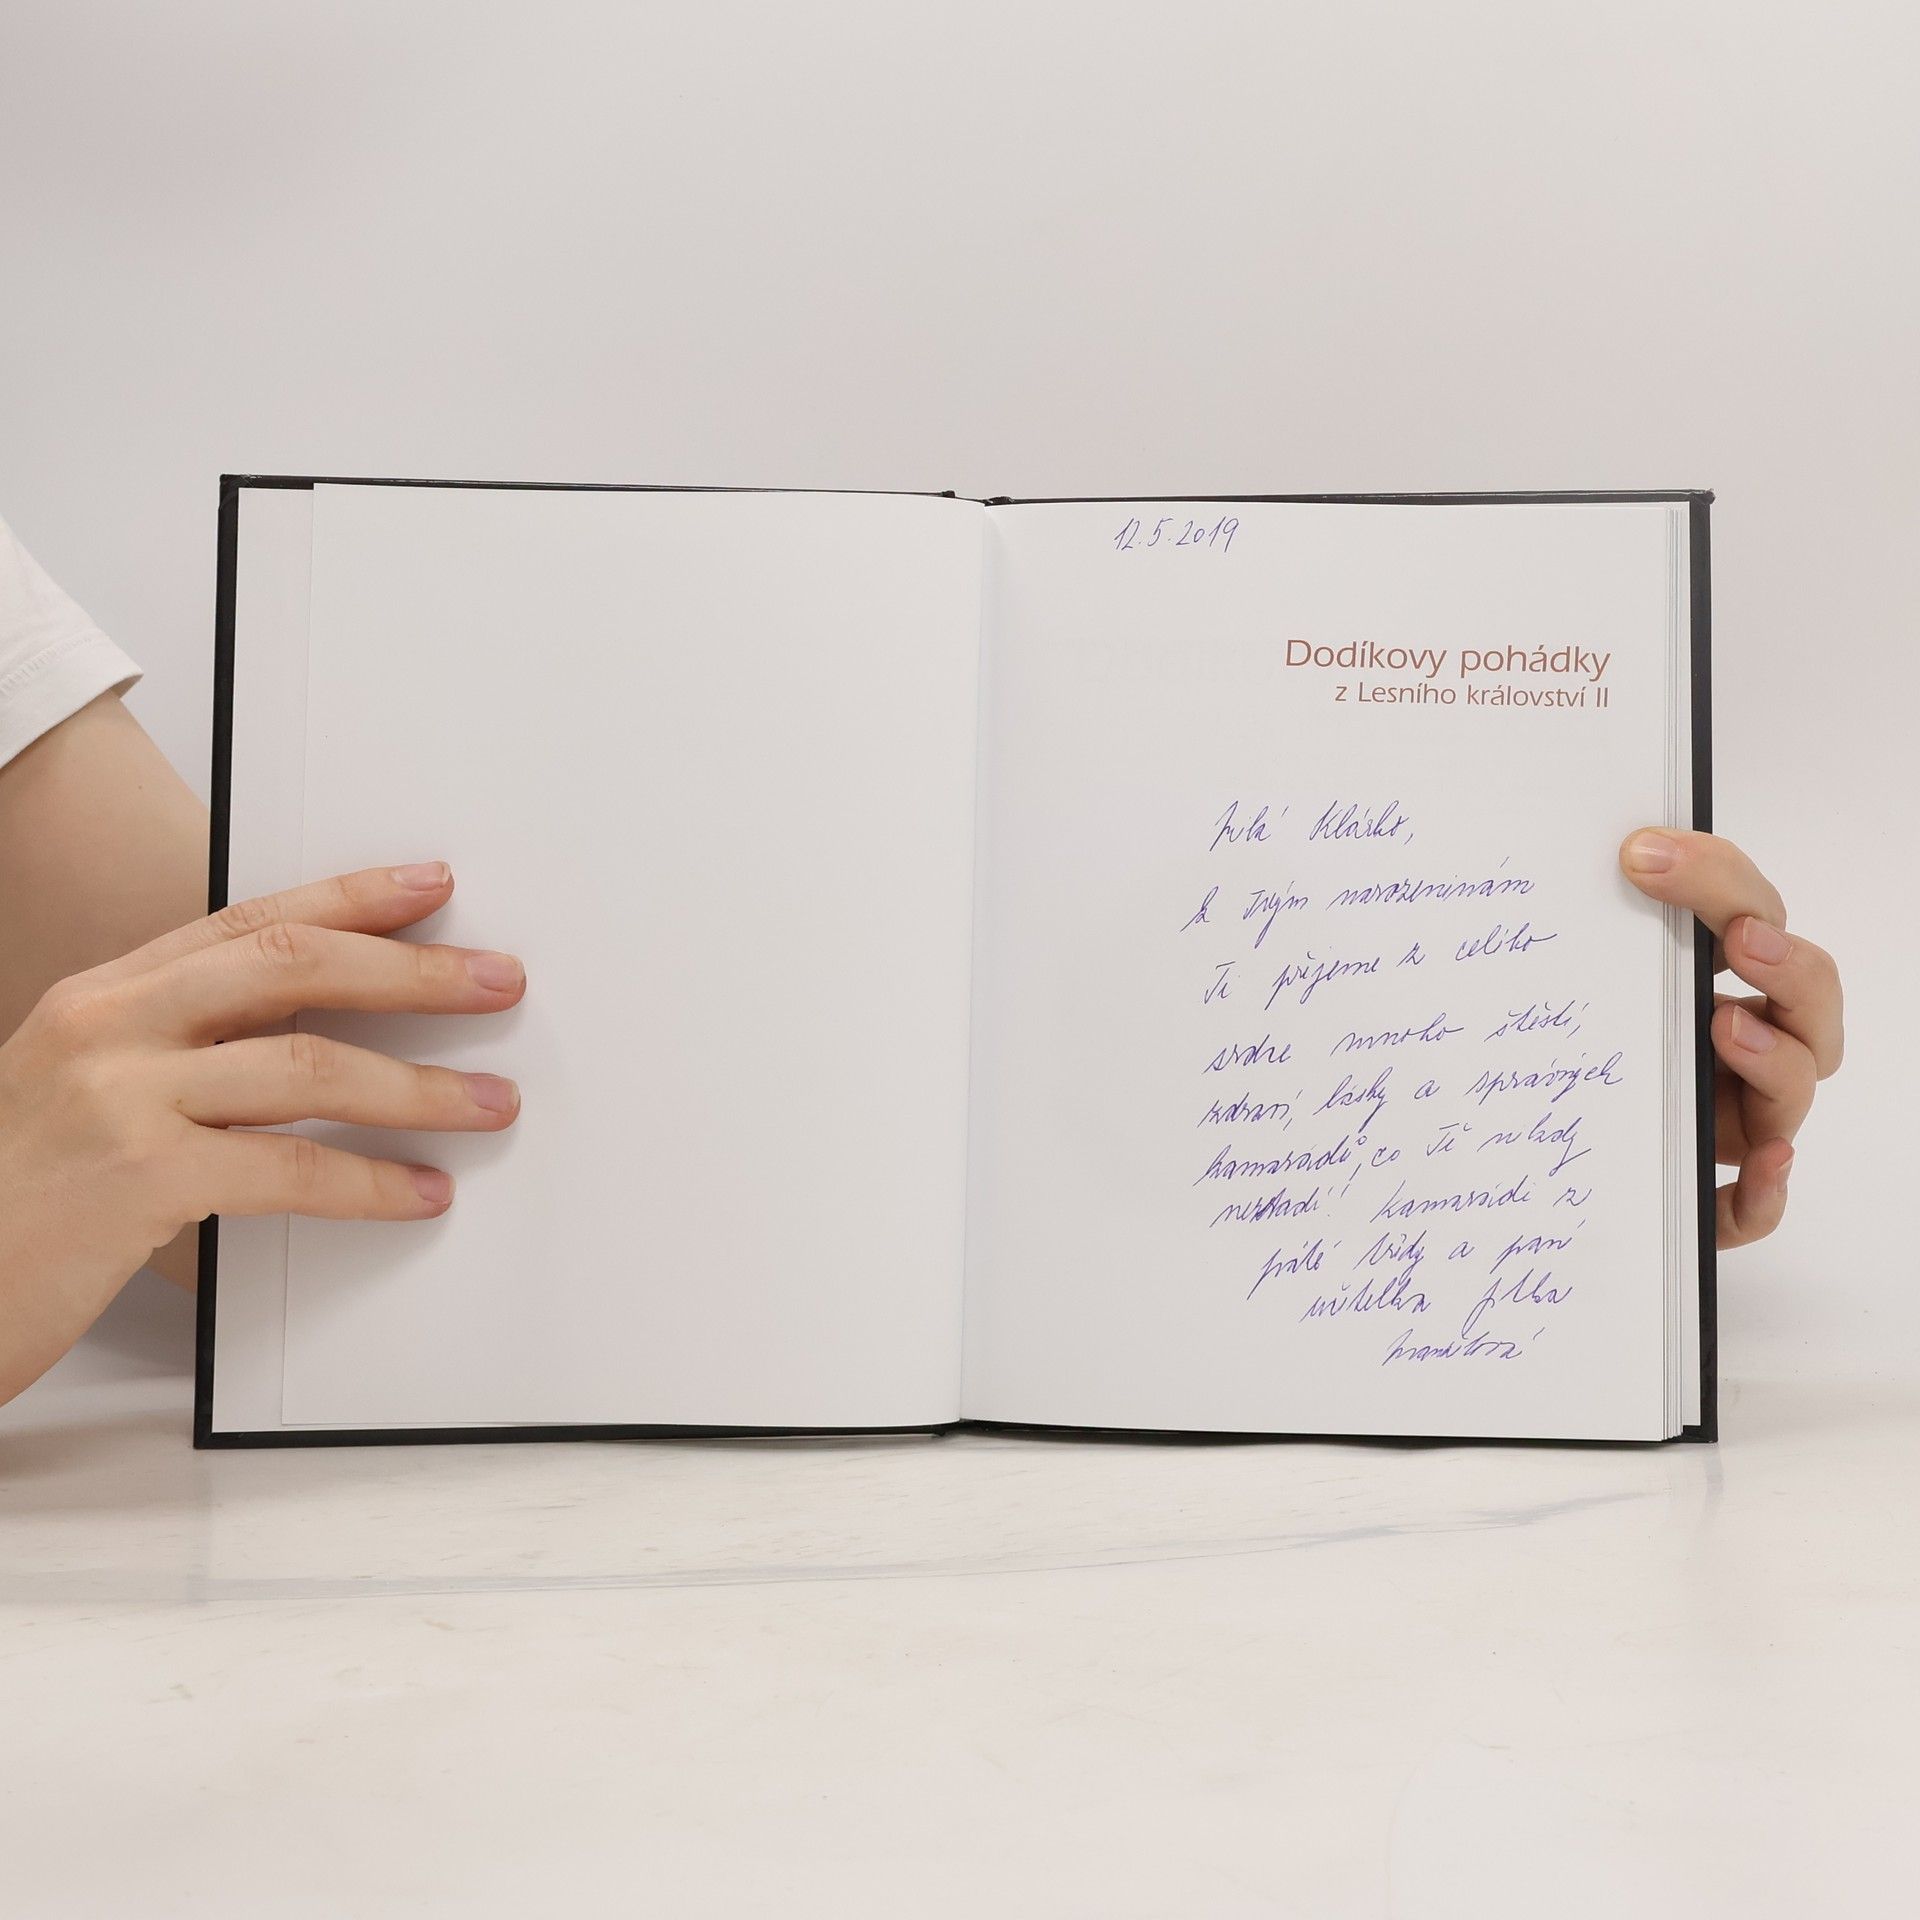 12.5.2019
Dodíkovy pohádky
z Lesního království II
Milá Klárko,
k Tvým narozeninám
Ti přejeme z celého
srdce mnoho štěstí,
zdraví, lásky a správných
kamarádů, co Tě nikdy
nezradí! Kamarádi z
páté třídy a paní
učitelka Jitka